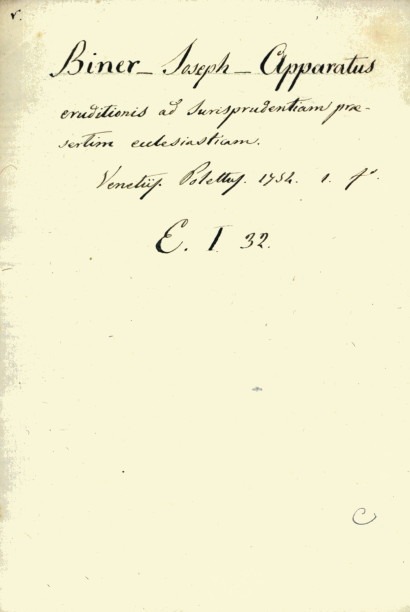 v.
Biner_ Joseph_ Apparatus
eruditionis ad Jurisprudentiam præ-
sertim ecclesiasticam.
Venetijs. Polettus. 1754. 1. fº.
E. I 32.
C